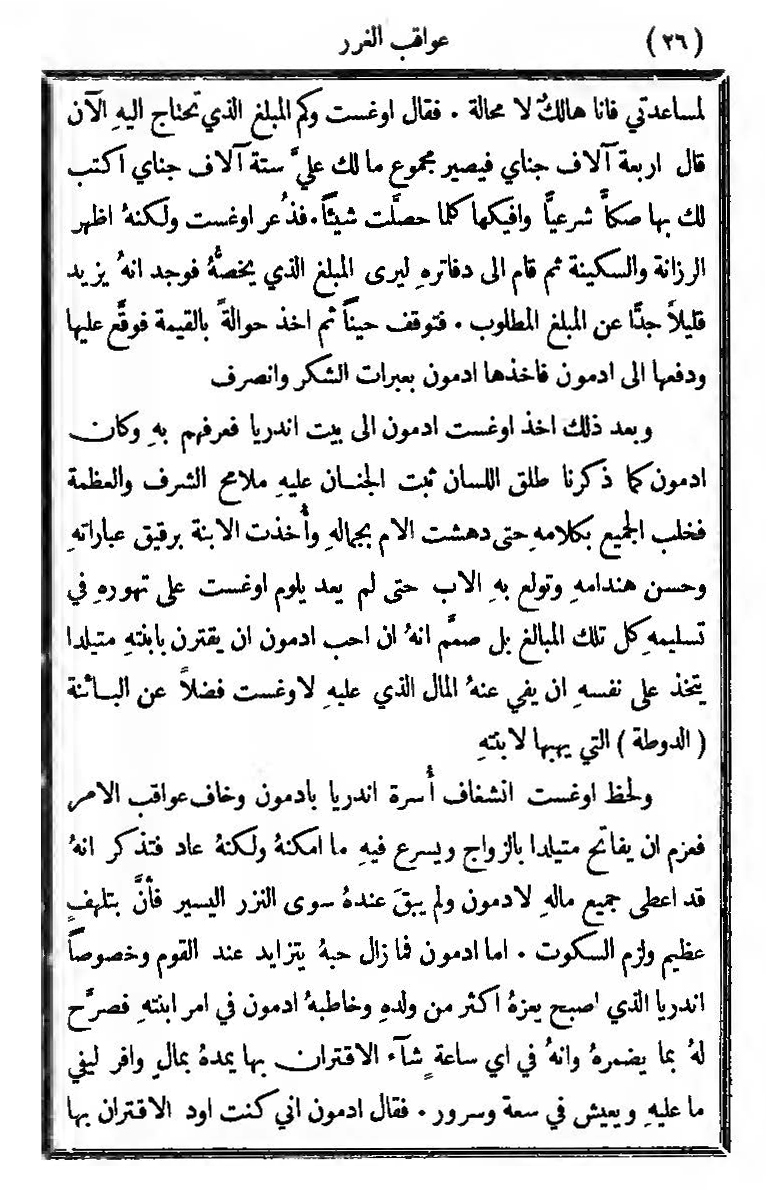 (٢٦) عواقب الغرر
لمساعدتي فانا هالكٌ لا محالة . فقال اوغست وكم المبلغ الذي تحتاج اليهِ الآن
قال اربعة آلاف جناي فيصير مجموع ما لك عليَّ ستة آلاف جناي اكتب
لك بها صكاً شرعيّاً وافيكها كلما حصلَّت شيئاً. فذُعر اوغست ولكنهُ اظهر
الرزانة والسكينة ثم قام الى دفاترهِ ليرى المبلغ الذي يخصهُّ فوجد انهُ يزيد
قليلاً جدًّا عن المبلغ المطلوب . فتوقف حيناً ثم اخذ حوالةً بالقيمة فوقَّع عليها
ودفعها الى ادمون فاخذها ادمون بعبرات الشكر وانصرف
وبعد ذلك اخذ اوغست ادمون الى بيت اندريا فعرفهم بهِ وكان
ادمون كما ذكرنا طلق اللسان ثبت الجنان عليهِ ملامح الشرف والعظمة
فخلب الجميع بكلامهِ حتى دهشت الام بجمالهِ وأُخذت الابنة برقيق عباراتهِ
وحسن هندامهِ وتولع بهِ الاب حتى لم يعد يلوم اوغست على تهورهِ في
تسليمهِ كل تلك المبالغ بل صممَّ انهُ ان احب ادمون ان يقترن بابنتهِ متيلدا
يتخذ على نفسهِ ان يفي عنهُ المال الذي عليهِ لاوغست فضلاً عن البائنة
( الدوطة ) التي يهبها لابنتهِ
ولحظ اوغست انشغاف أُسرة اندريا بادمون وخاف عواقب الامر
فعزم ان يفاتح متيلدا بالزواج ويسرع فيهِ ما امكنهُ ولكنهُ عاد فتذكر انهُ
قد اعطى جميع مالهِ لادمون ولم يبقَ عندهُ سوى النزر اليسير فأنَّ بتلهفٍ
عظيم ولزم السكوت . اما ادمون فما زال حبهُ يتزايد عند القوم وخصوصاً
اندريا الذي اصبح يعزهُ اكثر من ولدهِ وخاطبهُ ادمون في امر ابنتهِ فصرَّح
لهُ بما يضمرهُ وانهُ في اي ساعةٍ شآء الاقتران بها يمدهُ بمالٍ وافر ليفي
ما عليهِ ويعيش في سعة وسرور . فقال ادمون اني كنت اود الاقتران بها